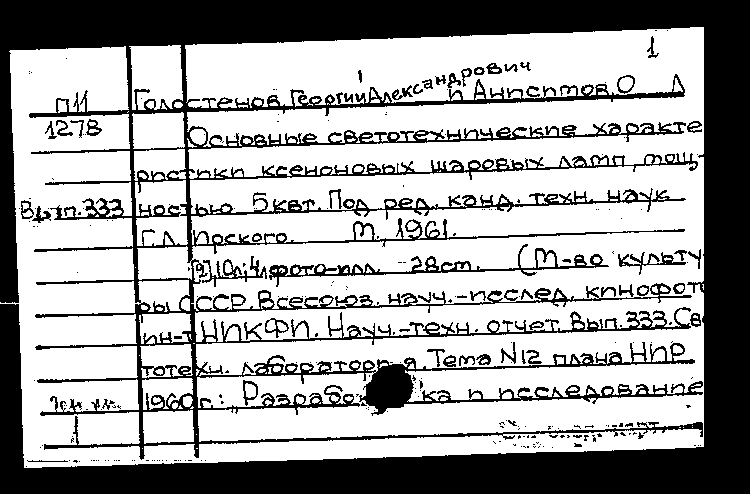 1
П11 Голостенов, Георгий Александрович и Анисимов, О Л
1278 Основные светотехнические характе
ристики ксеноновых шаровых ламп, мощ-
Вып. 333 ностью 5 квт. Под ред. канд. техн. наук
Г.Л. Ирского. М., 1961.
[2], 10 л; 4 л. фото-илл. 28 см. (М-во культу
ры СССР. Всесоюз. науч.-исслед. кинофото
ин-т НИКФИ. Науч.-техн. отчет. Вып. 333. Све
тотехн. лаборатория. Тема N12 плана НИР
1960 г.: „Разработка и исследование
1